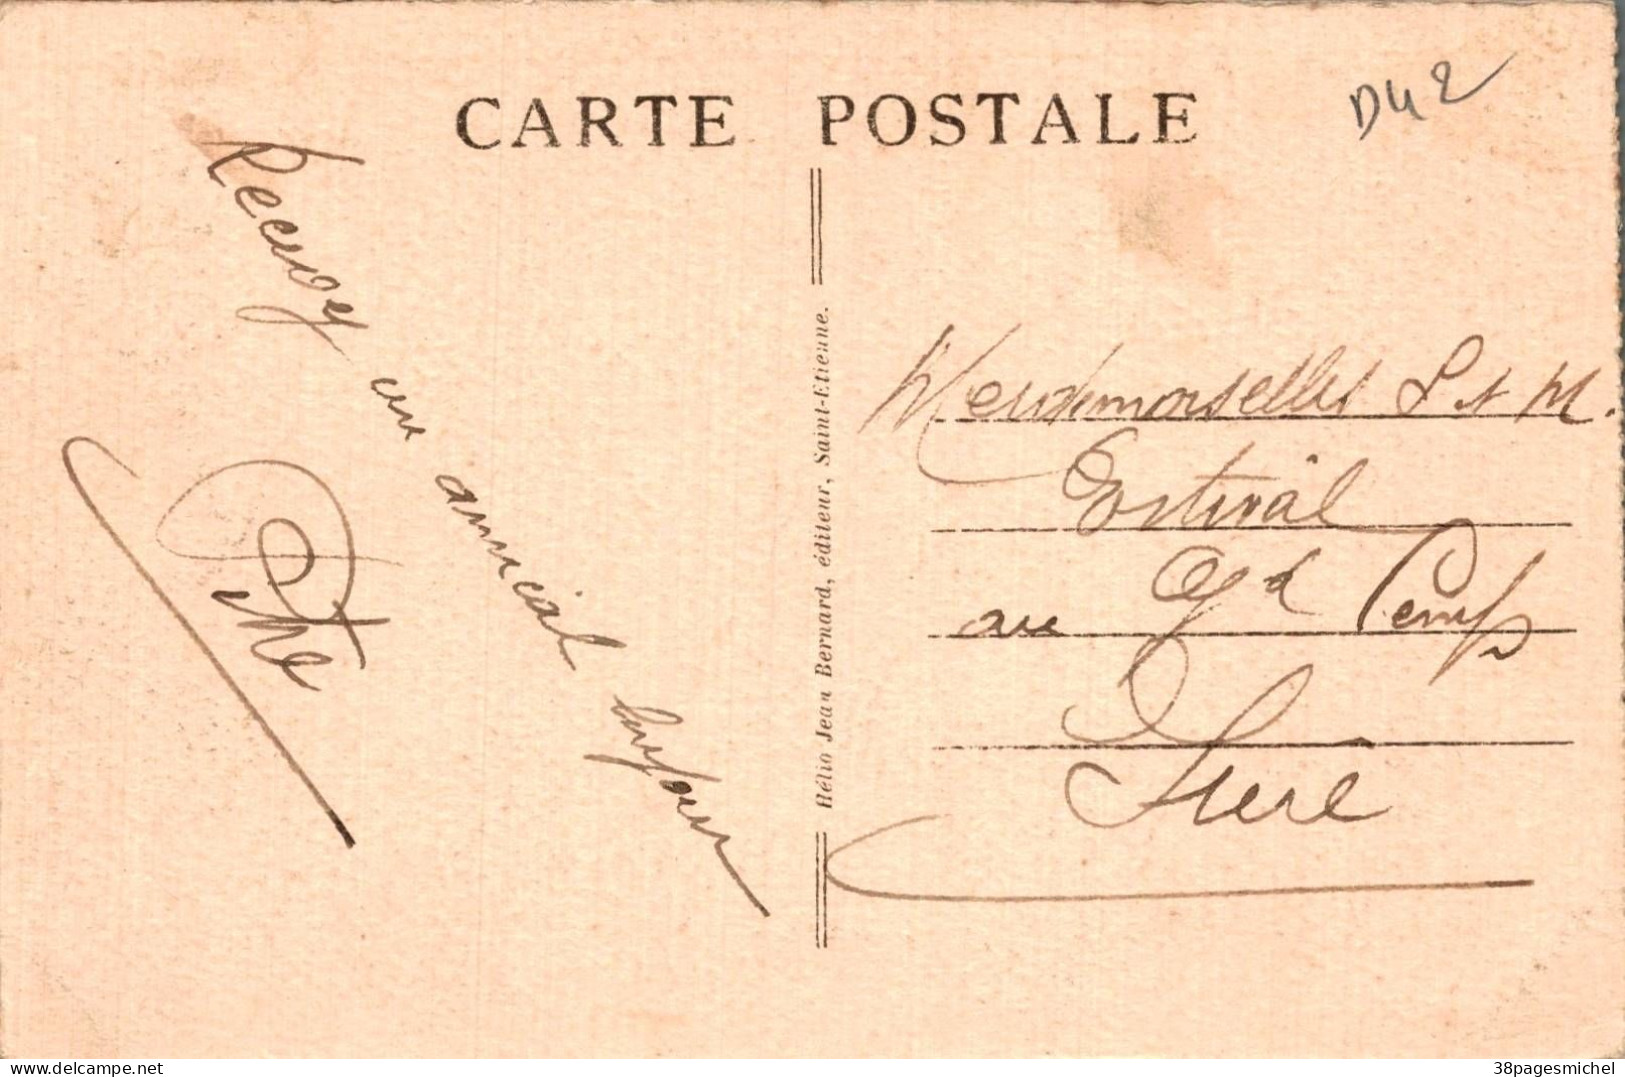 CARTE POSTALE
D42
Recevez un amical bonjour
Hélio Jean Bernard, éditeur, Saint-Etienne.
Mesdemoiselles S et M.
Estival
au Gd Temps
delcampe.net
38pagesmichel